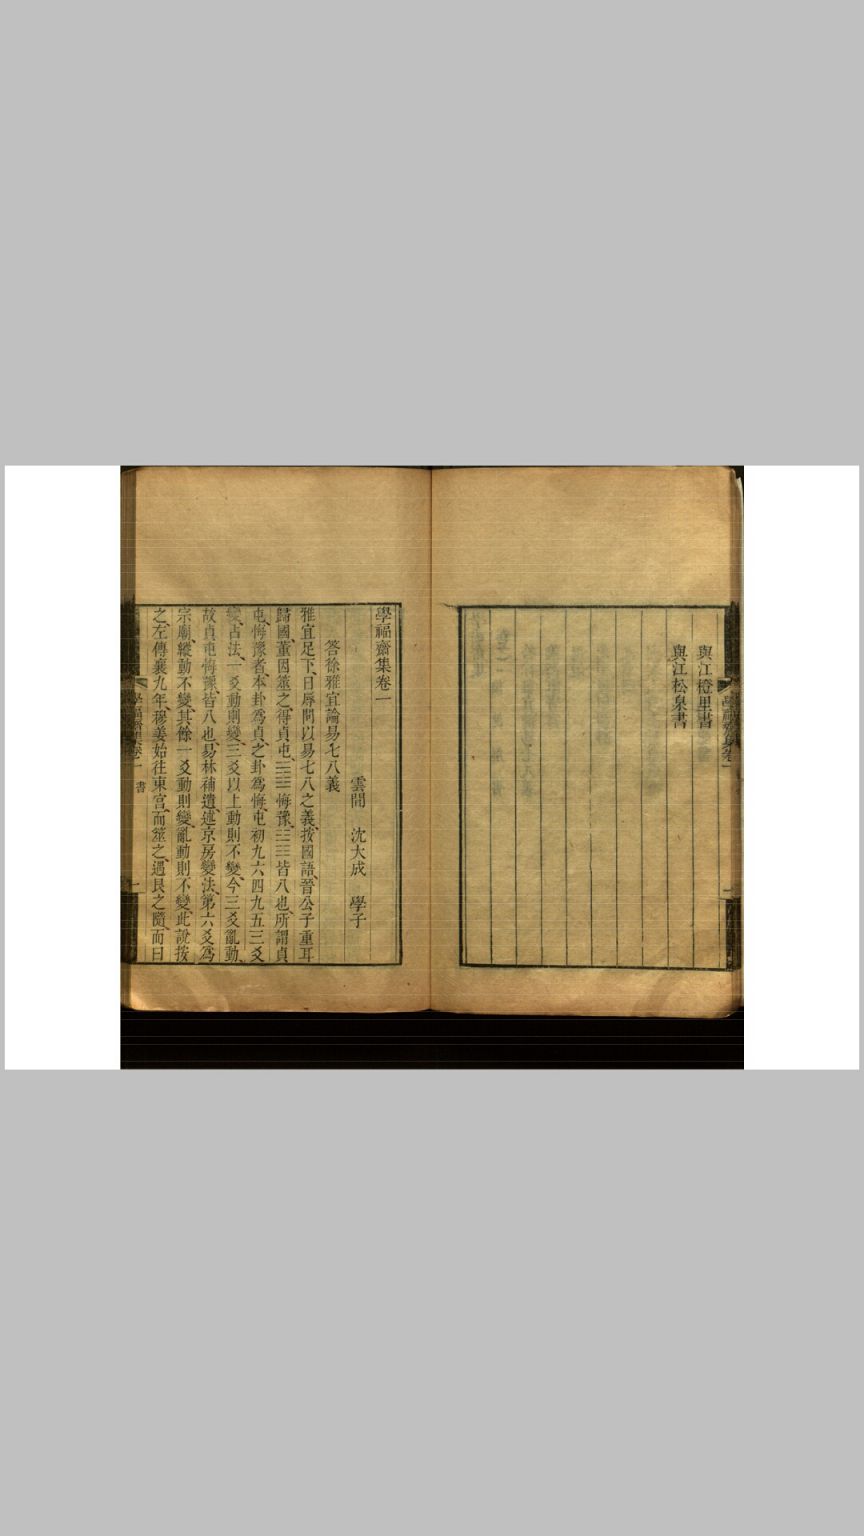 與江橙里書
與江松泉書
學福齋集卷一
雲間 沈大成 學子
答徐雅宜論易七八義
雅宜足下日辱問以易七八之義按國語晉公子重耳
歸國董因筮之得貞屯 悔豫 皆八也所謂貞
屯悔豫者本卦為貞之卦為悔屯初九六四九五三爻
變占法一爻動則變三爻以上動則不變今三爻亂動
故貞屯悔豫皆八也易林補遺述京房變法第六爻為
宗廟縱動不變其餘一爻動則變亂動則不變此說按
之左傳襄九年穆姜始往東宮而筮之遇艮之隨而曰
學福齋集卷一 書 一